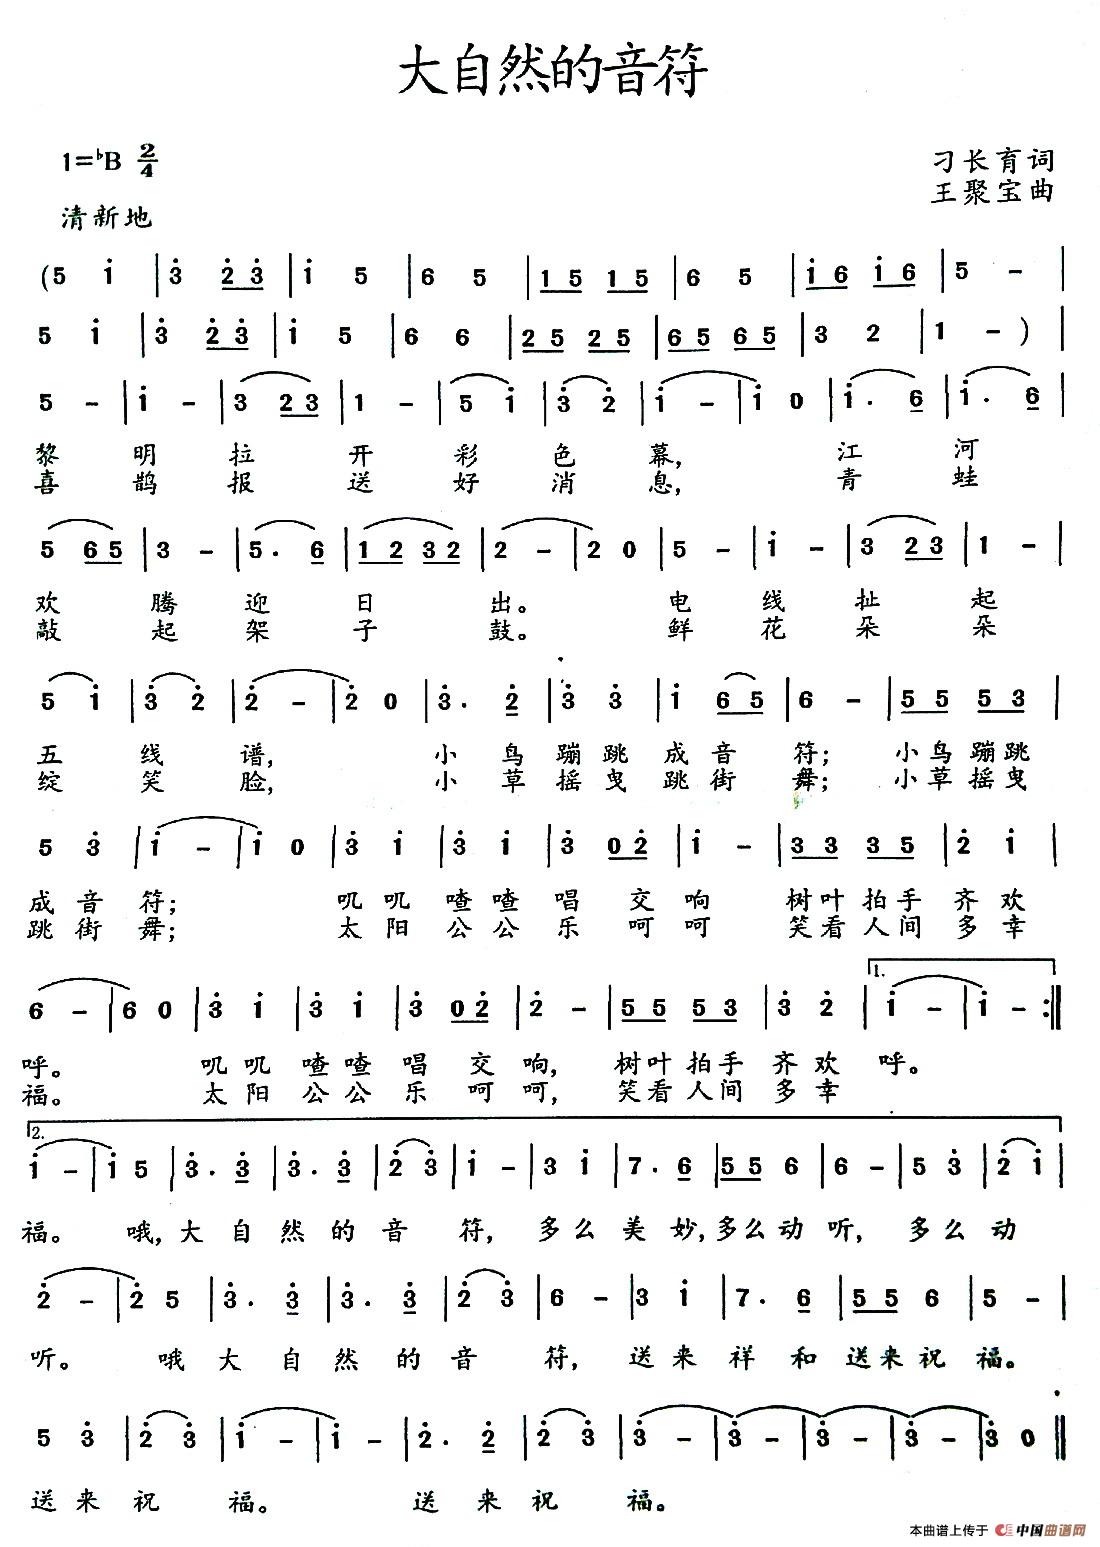 大自然的音符
1=♭B 2/4
刁长育词
王聚宝曲
清新地
(5 i̇ | 3̇ 2̇3̇ | i̇ 5 | 6 5 | 15 15 | 6 5 | i̇6 i̇6 | 5 - |
5 i̇ | 3̇ 2̇3̇ | i̇ 5 | 6 6 | 25 25 | 65 65 | 3 2 | 1 - ) |
5 - | i̇ - | 3 23 | 1 - | 5 i̇ | 3̇ 2̇ | i̇ - | i̇ 0 | i̇. 6̇ | i̇. 6̇ |
黎 明 拉 开 彩 色 幕, 江 河
喜 鹊 报 送 好 消 息, 青 蛙
5 65 | 3 - | 5. 6 | 12 32 | 2 - | 2 0 | 5 - | i̇ - | 3 23 | 1 - |
欢 腾 迎 日 出。 电 线 扯 起
敲 起 架 子 鼓。 鲜 花 朵 朵
5 i̇ | 3̇ 2̇ | 2̇ - | 2̇ 0 | 3̇. 2̇ | 3̇ 3̇ | i̇ 65 | 6 - | 55 53̇ |
五 线 谱, 小 鸟 蹦 跳 成 音 符; 小鸟蹦跳
绽 笑 脸, 小 草 摇 曳 跳 街 舞; 小草摇曳
5 3̇ | i̇ - | i̇ 0 | 3̇ i̇ | 3̇ i̇ | 3̇ 02̇ | i̇ - | 3̇3̇ 3̇5 | 2̇ i̇ |
成 音 符; 叽 叽 喳 喳 唱 交 响 树叶拍手 齐 欢
跳 街 舞; 太 阳 公 公 乐 呵 呵 笑看人间 多 幸
6 - | 6 0 | 3̇ i̇ | 3̇ i̇ | 3̇ 02̇ | 2̇ - | 55 53̇ | 3̇ 2̇ | 1. i̇ - | i̇ - :||
呼。 叽 叽 喳 喳 唱 交 响, 树叶拍手 齐 欢 呼。
福。 太 阳 公 公 乐 呵 呵, 笑看人间 多 幸
2. i̇ - | i̇ 5 | 3̇. 3̇ | 3̇. 3̇ | 2̇ 3̇ | i̇ - | 3 i̇ | 7. 6 | 55 6 | 6 - | 5 3̇ | 2̇ i̇ |
福。 哦, 大 自 然 的 音 符, 多 么 美 妙, 多么动 听, 多 么 动
2̇ - | 2̇ 5 | 3̇. 3̇ | 3̇. 3̇ | 2̇ 3̇ | 6 - | 3 i̇ | 7. 6 | 55 6 | 5 - |
听。 哦 大 自 然 的 音 符, 送 来 祥 和 送来祝 福。
5 3̇ | 2̇ 3̇ | i̇ - | i̇ - | 2̇. 2̇ | 2̇ 3̇ | 3̇ - | 3̇ - | 3̇ - | 3̇ - | 3̇ 0 |
送 来 祝 福。 送 来 祝 福。
本曲谱上传于 中国曲谱网